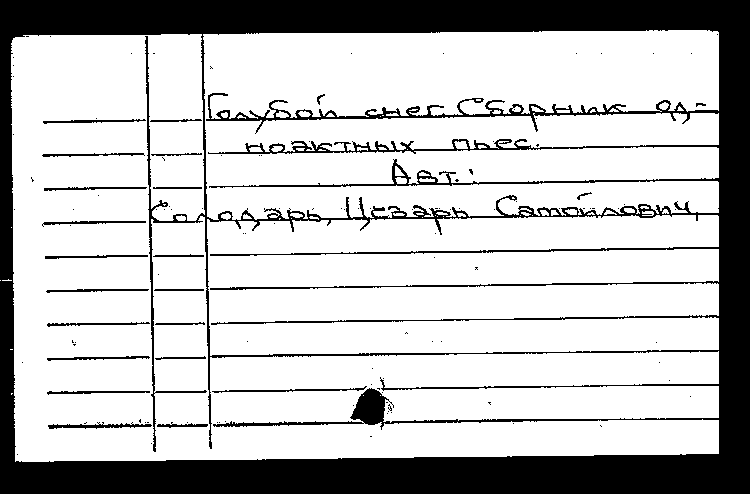 Голубой снег. Сборник од-
ноактных пьес.
Авт.:
Солодарь, Цезарь Самойлович,